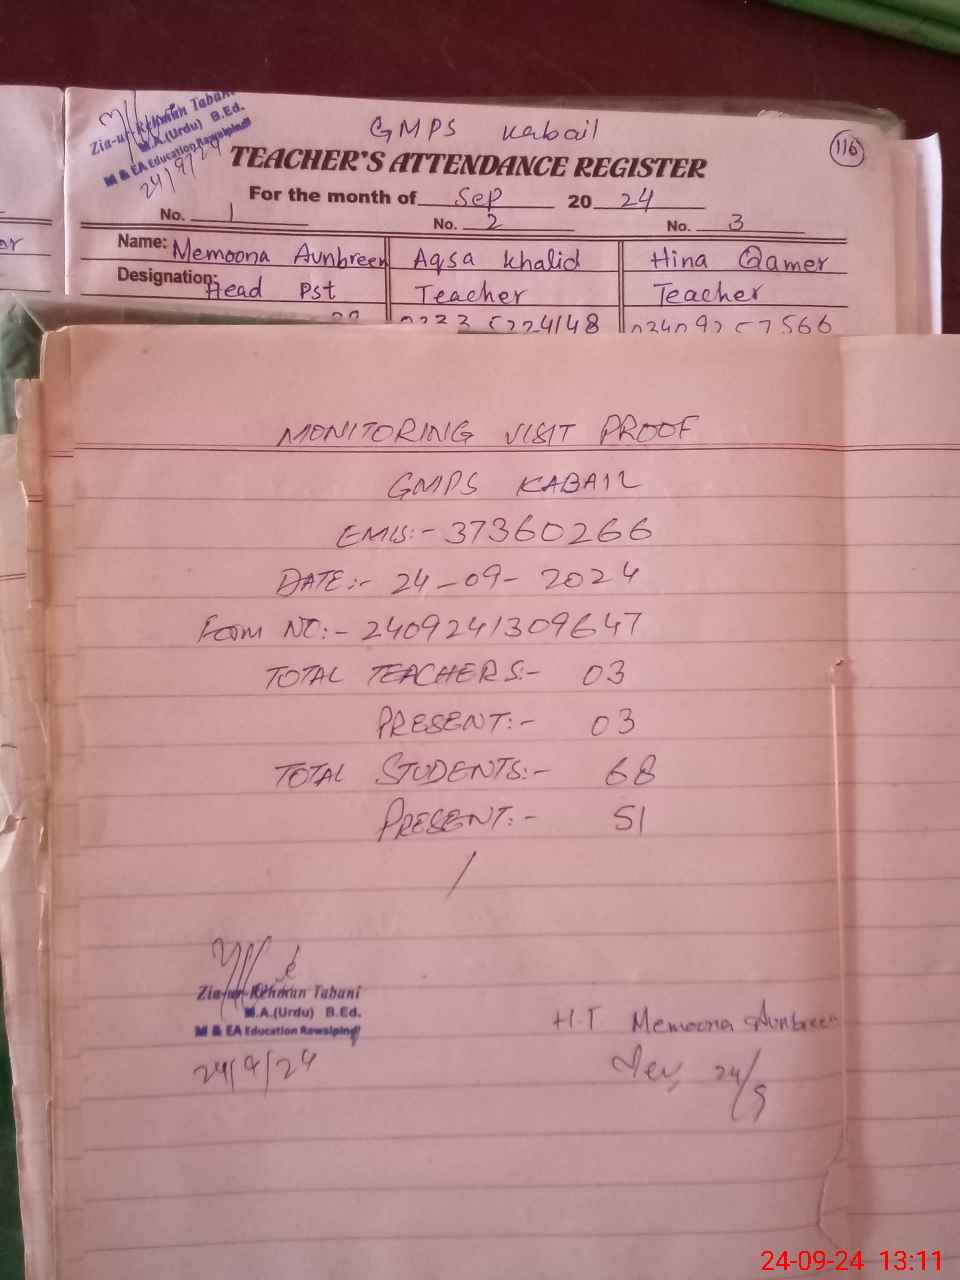 Zia-ur-Rehman Tabani
M.A.(Urdu) B.Ed.
M & EA Education Rawalpindi
24/9/24
GMPS Kabail
116
TEACHER'S ATTENDANCE REGISTER
For the month of Sep 2024
No. 1 No. 2 No. 3
Name: Memoona Aunbreen Aqsa Khalid Hina Qamer
Designation: Head Pst Teacher Teacher
MONITORING VISIT PROOF
GMPS KABAIL
EMIS:- 37360266
DATE:- 24-09-2024
Form NO:- 2409241309647
TOTAL TEACHERS:- 03
PRESENT:- 03
TOTAL STUDENTS:- 68
PRESENT:- 51
/
Zia-ur-Rehman Tabani
M.A.(Urdu) B.Ed.
M & EA Education Rawalpindi
24/9/24
H.T Memoona Aunbreen
24/9
24-09-24 13:11